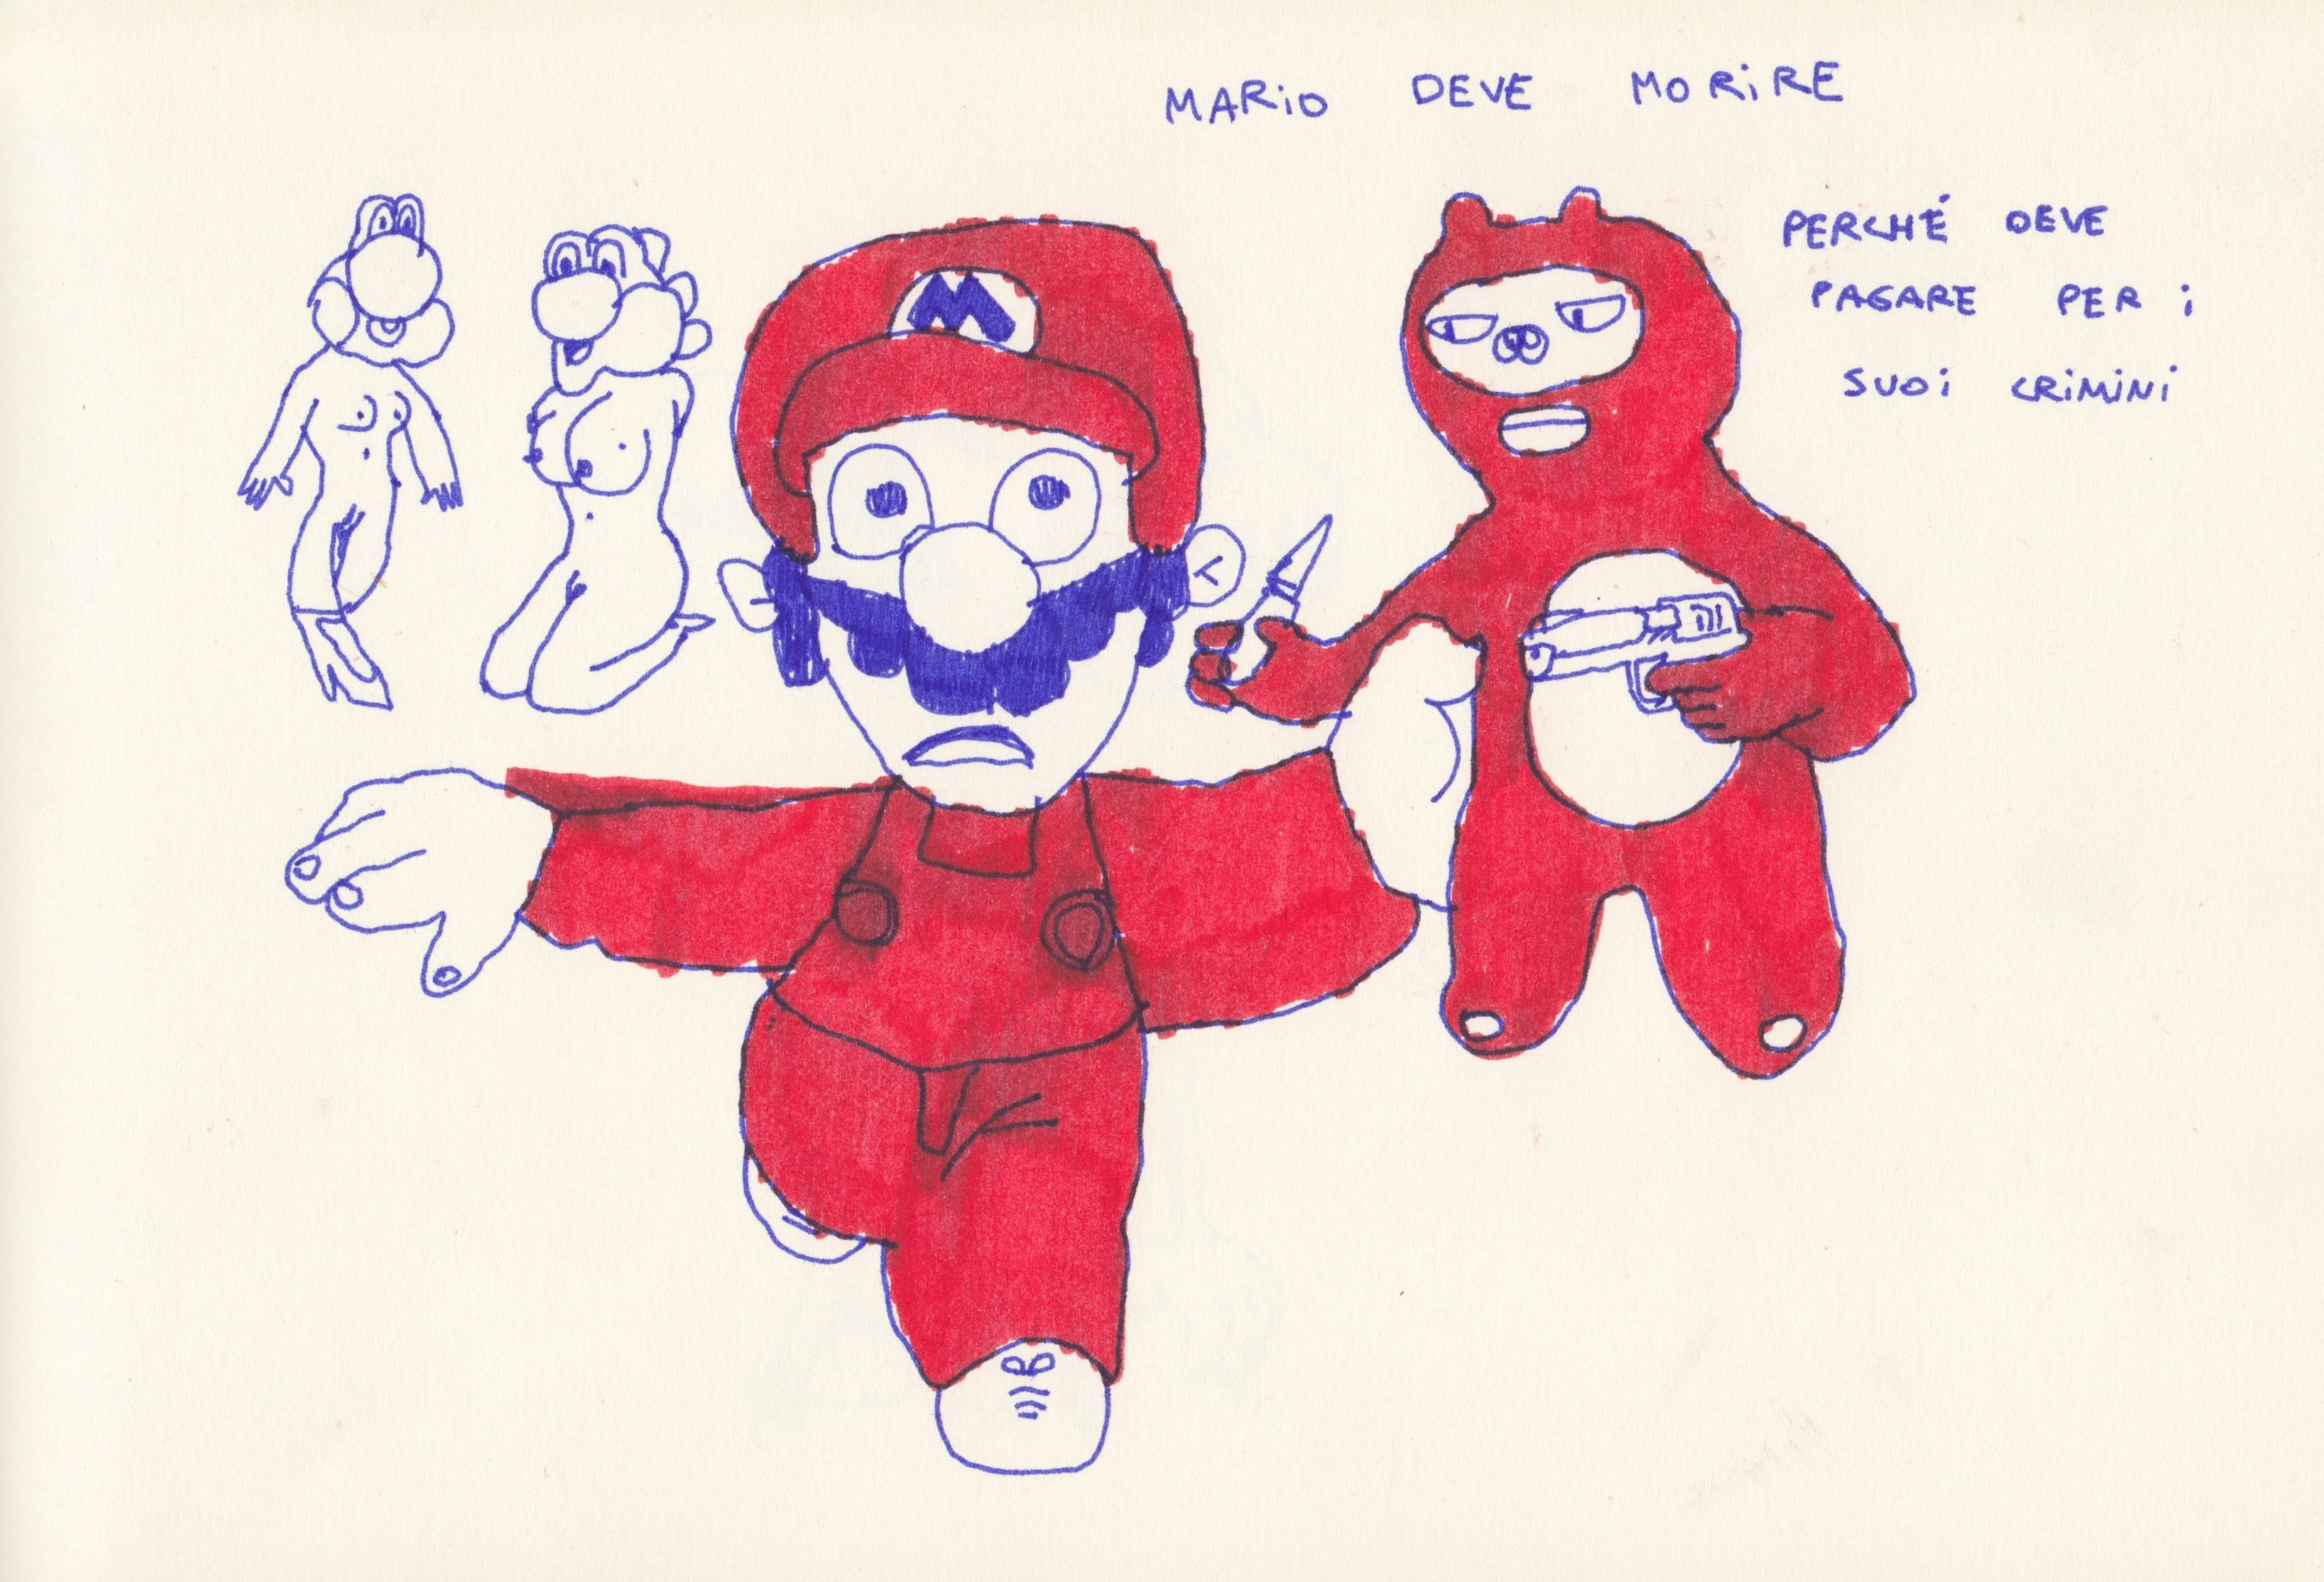 MARiO DEVE MORiRE
PERCHÉ DEVE
PAGARE PER i
SUOi CRiMiNi
M